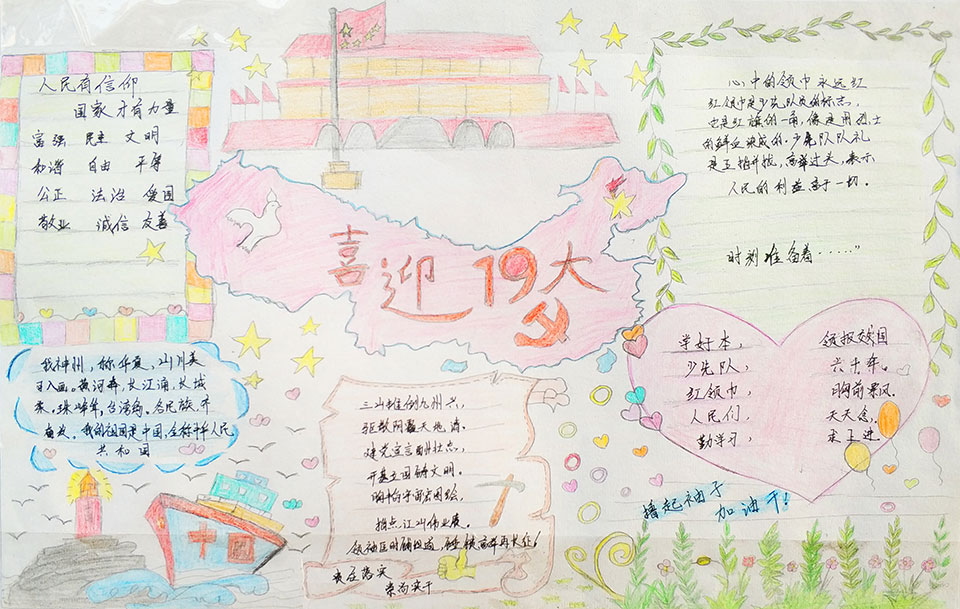 人民有信仰
国家才有力量
富强 民主 文明
和谐 自由 平等
公正 法治 爱国
敬业 诚信 友善
喜迎19大
心中的领巾永远红
红领巾是少先队员的标志,
也是红旗的一角,像是用烈士
的鲜血染成的。少先队队礼
是五指并拢,高举过头,表示
人民的利益高于一切。
时刻准备着······"
我神州,称华夏,山川美
可入画。黄河奔,长江涌,长城
长,珠峰
台湾
各民族,齐
奋发。我的祖国是中国,全称中华人民
共和国
三山推倒九州兴,
驱散阴霾天地清。
建党宣言酬壮志,
开基立国铸文明。
胸中宇宙
绘,
指点江山伟业展。
高举再长征!
责在落实
贵为实干
学好本, 领报效国
少先队, 六十年。
红领巾, 胸前飘风
人民们, 天天念,
勤学习, 求上进
撸起袖子
加油干!